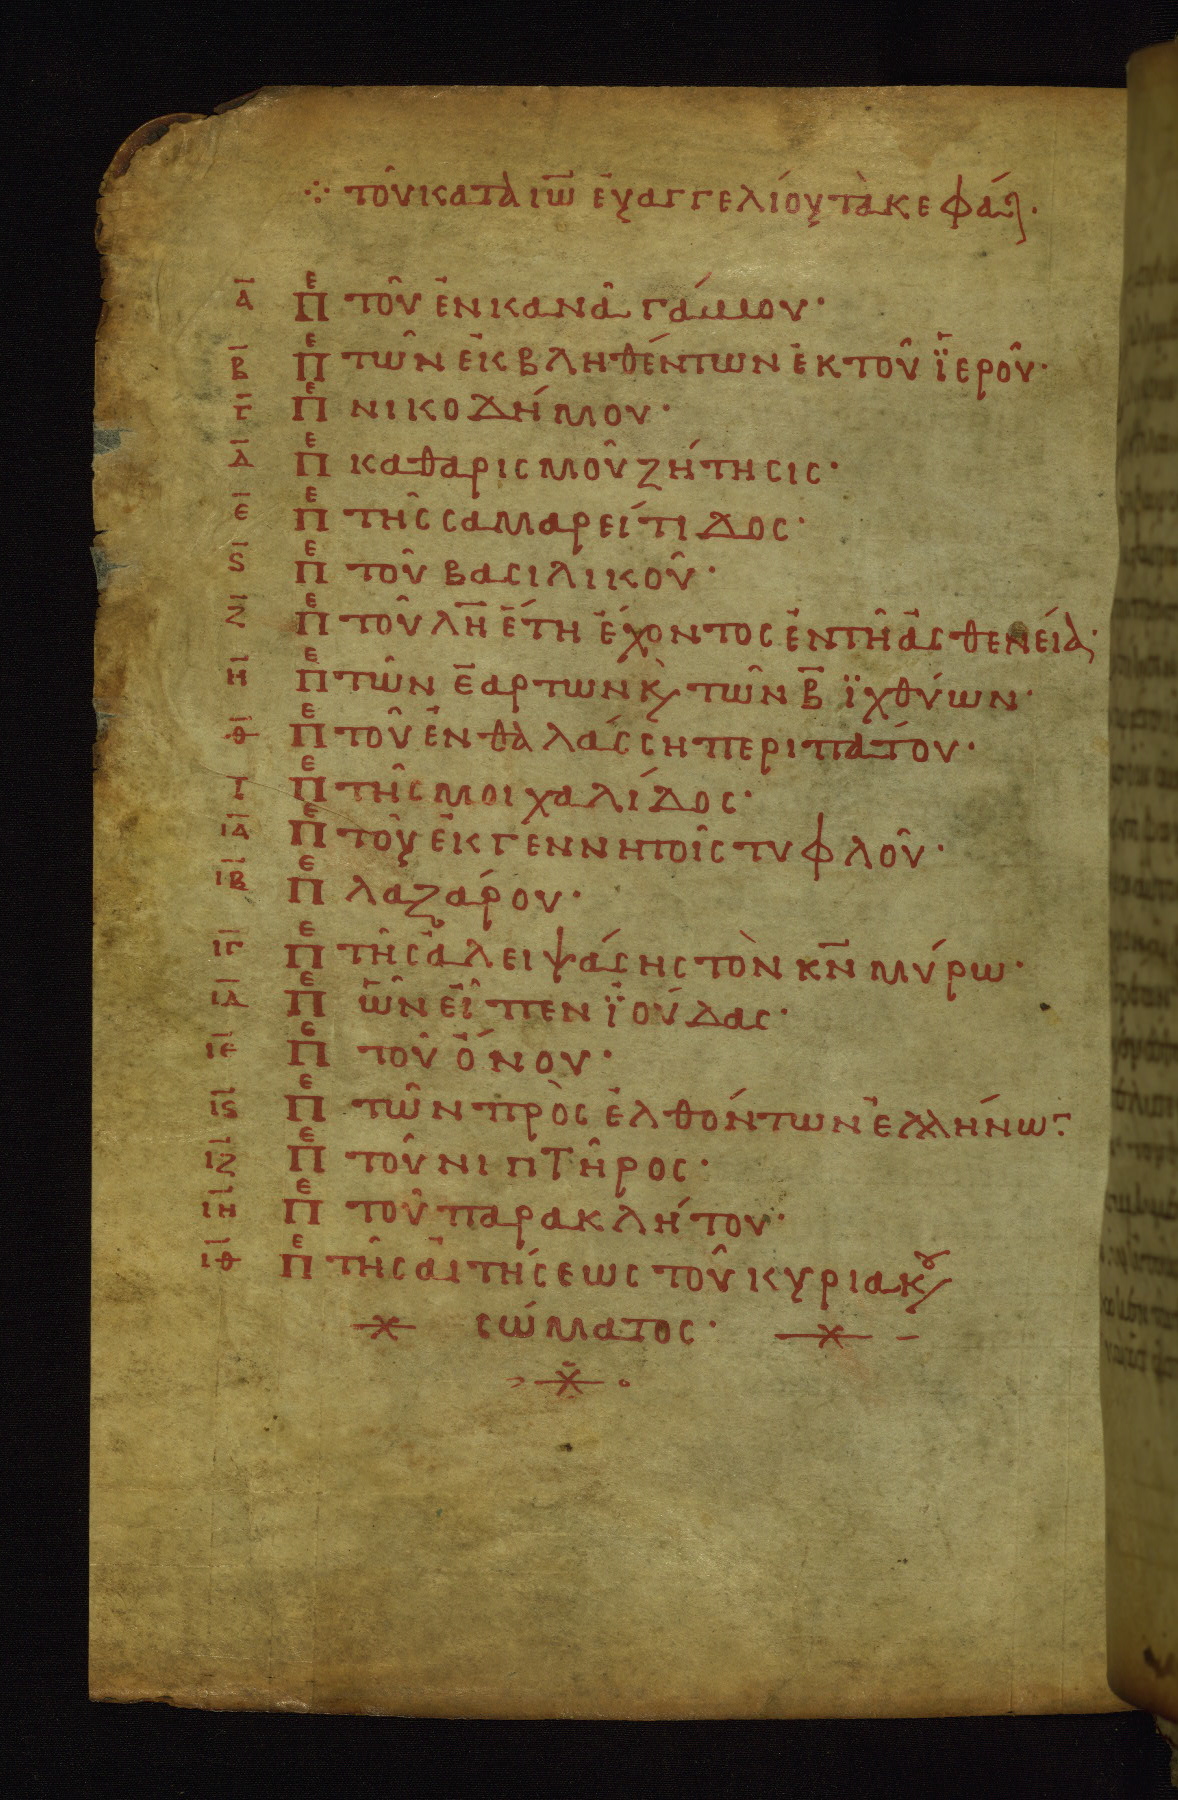 ⁘ τοῦ κατὰ ιω̅ εὐαγγελίου τὰ κεφάλ·
α̅ πε τοῦ ἐν κανᾶ γάμου·
β̅ πε τῶν ἐκβληθέντων ἐκ τοῦ ἱεροῦ·
γ̅ πε νικοδήμου·
δ̅ πε καθαρισμοῦ ζήτησις·
ε̅ πε τῆς σαμαρείτιδος·
ϛ̅ πε τοῦ βασιλικοῦ·
ζ̅ πε τοῦ λ̅η̅ ἔτη ἔχοντος ἐν τῆ ἀσθενεία·
η̅ πε τῶν ε̅ αρτων κ̀ τῶν β̅ ἰχθύων·
θ̅ πε τοῦ ἐν θαλάσση περιπάτου·
ι̅ πε τῆς μοιχαλίδος·
ι̅α̅ πε τοῦ ἐκ γεννητοῖς τυφλοῦ·
ι̅β̅ πε λαζάρου·
ι̅γ̅ πε τῆς ἀλειψάσης τὸν κ̅ν̅ μύρω·
ι̅δ̅ πε ὧν εἶπεν ἰούδας·
ι̅ε̅ πε τοῦ ὄνου·
ι̅ϛ̅ πε τῶν πρὸσελθόντων ἑλλήνω·
ι̅ζ̅ πε τοῦ νιπτῆρος·
ι̅η̅ πε τοῦ παρακλήτου·
ι̅θ̅ πε τῆς αἰτήσεως τοῦ κυριακου
σώματος·